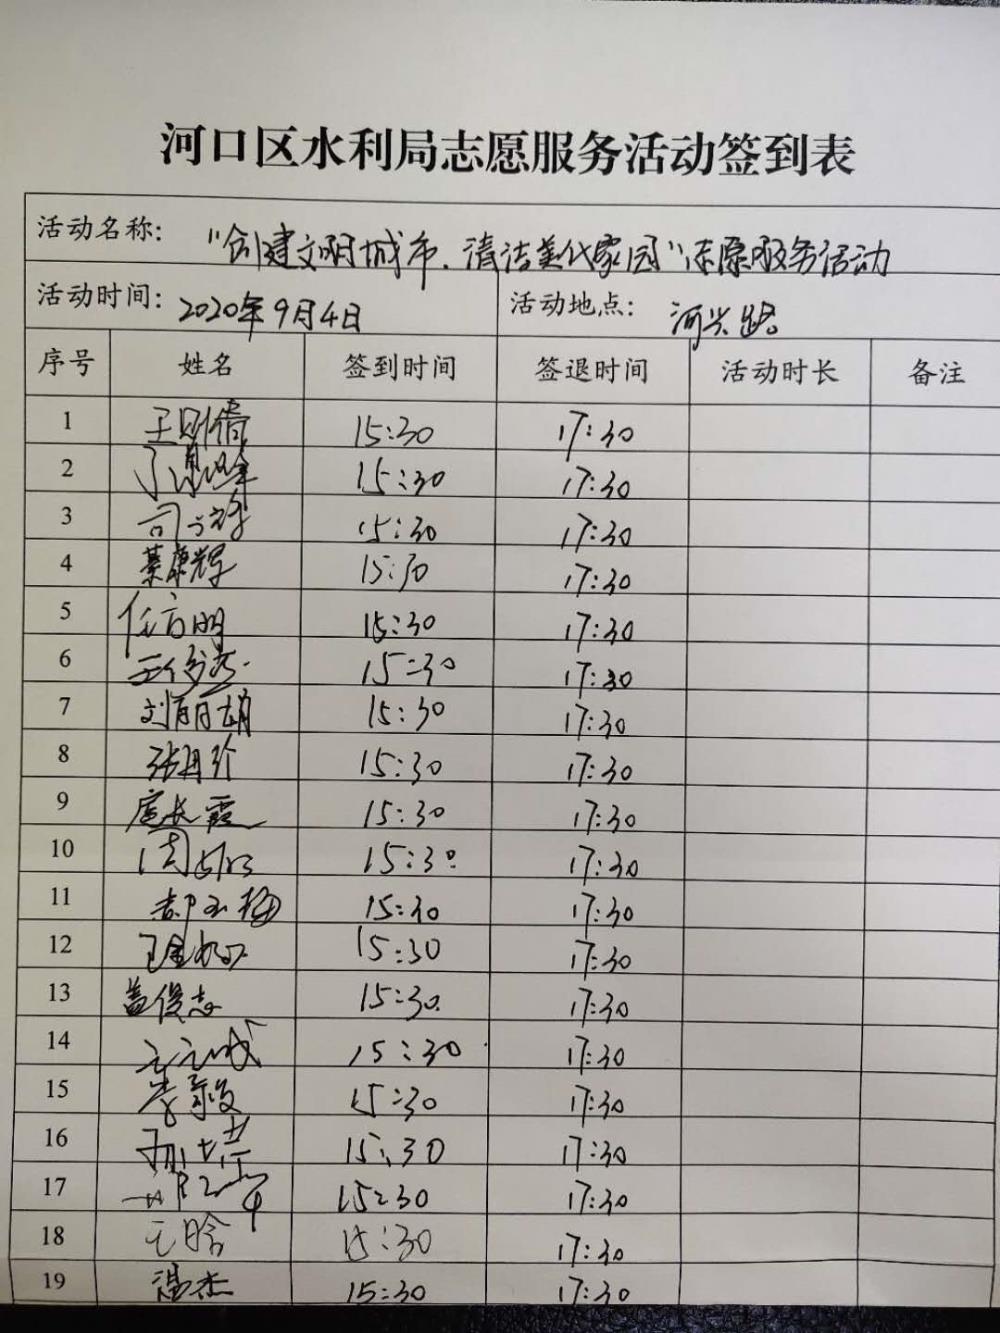 河口区水利局志愿服务活动签到表
活动名称： "创建文明城市、清洁美化家园"志愿服务活动
活动时间： 2020年9月4日 活动地点： 河兴路
序号 姓名 签到时间 签退时间 活动时长 备注
1 15:30 17:30
2 15:30 17:30
3 15:30 17:30
4 綦康辉 15:30 17:30
5 任方明 15:30 17:30
6 15:30 17:30
7 15:30 17:30
8 15:30 17:30
9 扈长霞 15:30 17:30
10 15:30 17:30
11 15:30 17:30
12 15:30 17:30
13 盖俊志 15:30 17:30
14 15:30 17:30
15 李毅 15:30 17:30
16 15:30 17:30
17 15:30 17:30
18 王晗 15:30 17:30
19 温杰 15:30 17:30